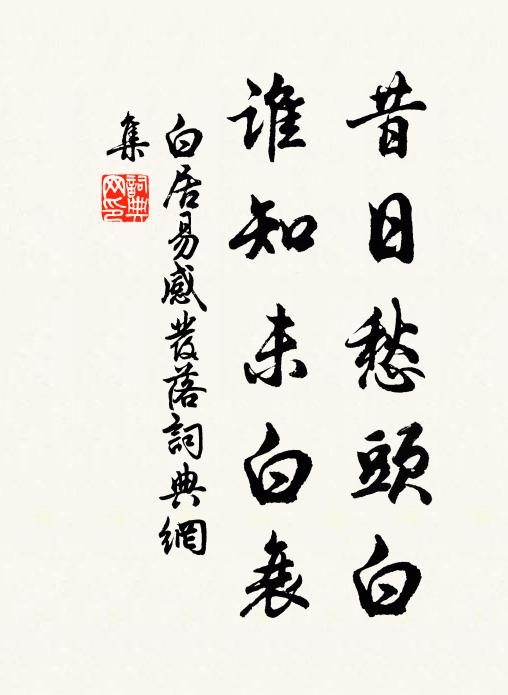 昔日愁頭白
誰知未白衰
白居易感發落詞典網
集
詞典网印